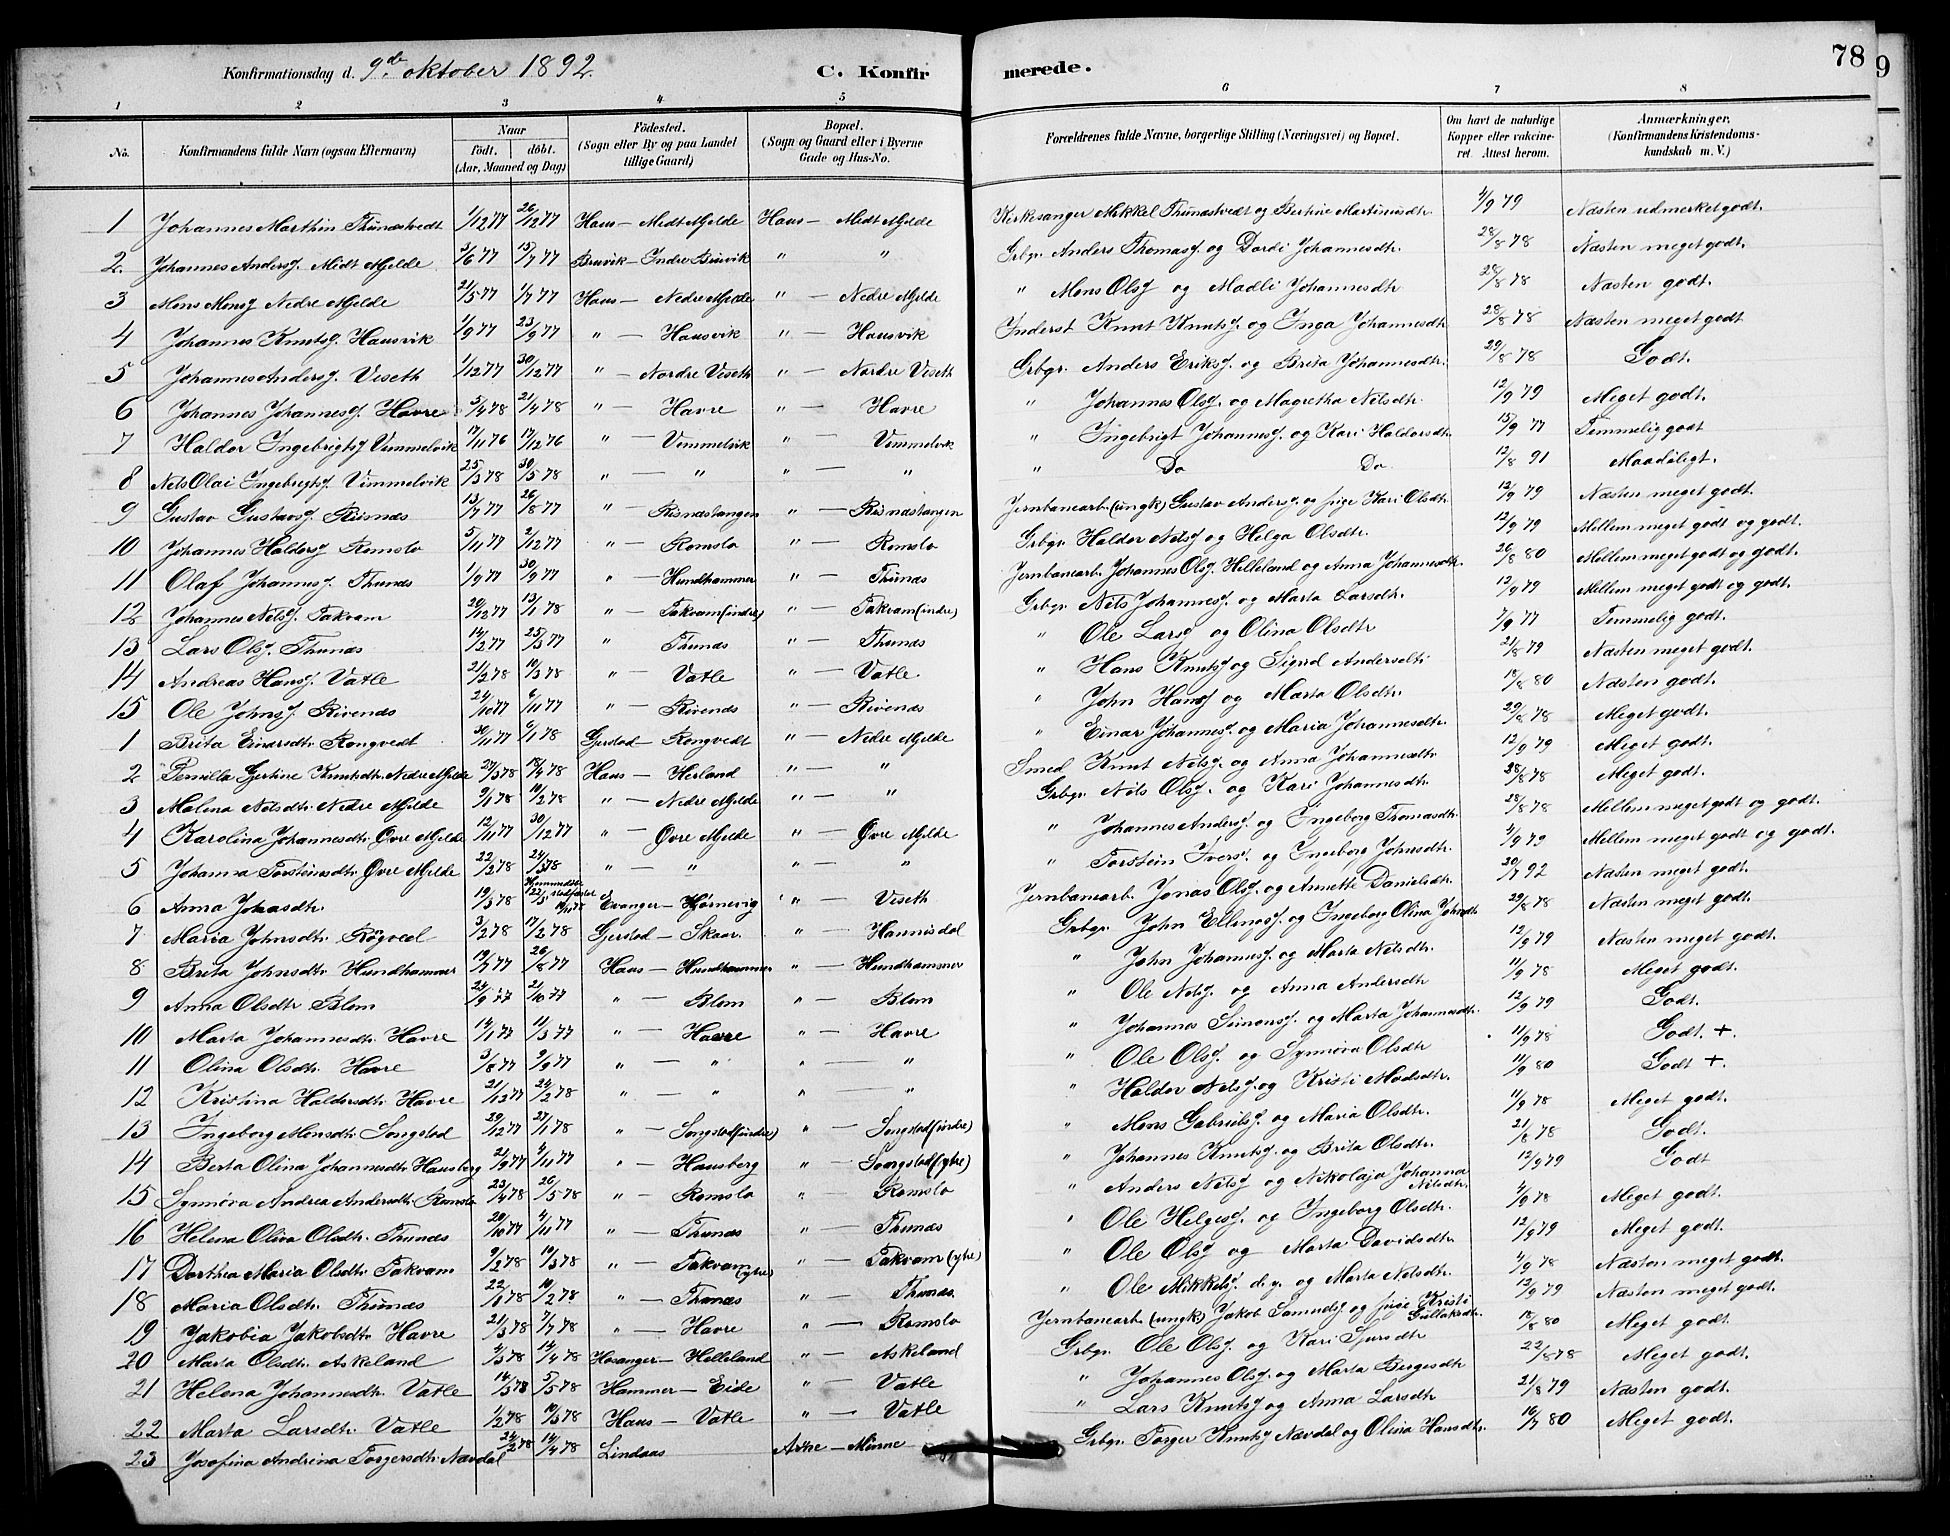 Konfirmationsdag d. 9de oktober 1892. C. Konfirmerede. 78
9
1 2 3 4 5 6 7 8
No. | Konfirmandens fulde Navn (ogsaa Efternavn) | Naar født. døbt. (Aar, Maaned og Dag) | Födested. (Sogn eller By og paa Landet tillige Gaard) | Bopæl. (Sogn og Gaard eller i Byerne Gade og Hus-No. | Forældrenes fulde Navne, borgerlige Stilling (Næringsvei) og Bopæl. | Om havt de naturlige Kopper eller vakcineret. Attest herom. | Anmærkninger. (Konfirmandens Kristendomskundskab m. V.)
1 Johannes Marthin Thunæstvedt 1/12 77 26/12 77 Haus — Midt Mjelde Haus — Midt Mjelde Kirkesanger Mikkel Thunæstvedt og Bertine Martinusdtr. 4/9 79 Næsten udmerket godt.
2. Johannes Andersj. Midt Mjelde 3/6 77 15/7 77 Bruvik — Indre Bruvik " " Grbgr. Anders Thomasj og Dordi Johannesdtr. 28/8 78 Næsten meget godt.
3 Mons Monsj Nedre Mjelde 21/5 77 1/7 77 Haus — Nedre Mjelde " — Nedre Mjelde " Mons Olsj og Madli Johannesdtr 28/8 78 Næsten godt.
4 Johannes Knutsj. Hausvik 1/9 77 23/9 77 " — Hausvik " — Hausvik Inderst Knut Knutsj. og Inga Johannesdtr 28/8 78 Næsten meget godt
5 Johannes Andersj. Viseth 1/12 77 30/12 77 " — Nordre Viseth " — Nordre Viseth Grbgr. Anders Eriksj. og Brita Johannesdtr. 29/8 78 Godt.
6 Johannes Johannesj. Havre 3/4 78 21/4 78 " — Havre " — Havre " Johannes Olsj. og Magretha Nilsdtr. 12/9 79 Meget godt.
7 Haldor Ingebrigtsj Vimmelvik 17/11 76 17/12 76 " — Vimmelvik " — Vimmelvik " Ingebrigt Johannesj. og Kari Haldorsdtr. 15/9 77 Temmelig godt
8 Nils Olai Ingebrigtsj. Vimmelvik 25/3 78 30/5 78 " — " " — " " Do Do. 12/8 91 Maadeligt.
9 Gustav Gustavsj. Risnæs 13/7 77 26/8 77 " — Risnæstangen " — Risnæstangen Jernbanearb. (ungk) Gustav Andersj og pige Kari Olsdtr. 12/9 79 Næsten meget godt.
10 Johannes Haldorsj Romslo 5/11 77 2/12 77 " — Romslo " — Romslo Grbgr. Haldor Nilsj og Helga Olsdtr. 12/9 79 Mellem meget godt og godt.
11 Olaf Johannesj. Thunæs 1/9 77 30/9 77 " — Hundhammer " — Thunæs Jernbanearb. Johannes Olsj. Helleland og Anna Johannesdtr. 26/8 80 Mellem meget godt og godt.
12 Johannes Nilsj. Takvam 20/12 77 13/1 78 " — Takvam (indre) " — Takvam (indre) Grbgr. Nils Johannesj. og Marta Larsdtr. 12/9 79 Mellem meget godt og godt.
13 Lars Olsj. Thunæs 14/2 77 25/3 77 " Thunæs " — Thunæs " Ole Larsj og Olina Olsdtr 7/9 77 Temmelig godt.
14 Andreas Hansj. Vatle 21/2 78 10/3 78 " — Vatle " — Vatle. " Hans Knutsj og Sigrid Andersdtr 21/8 79 Næsten meget godt.
15 Ole Johnsj. Rivenæs 24/10 77 6/11 77 " — Rivenæs " — Rivenæs " John Hansj og Marta Olsdtr. 19/8 80 Næsten godt.
1 Brita Einarsdtr. Rongvedt 30/11 77 6/1 78 Gjerstad — Rongvedt " — Nedre Mjelde " Einar Johannesj. og Maria Johannesdtr. 29/8 78 Meget godt.
2 Pernilla Gertine Knutsdtr. Nedre Mjelde 27/3 78 18/4 78 Haus — Herland " — " Smed Knut Nilsj. og Anna Johannesdtr 12/9 79 Meget godt.
3 Malina Nilsdtr. Nedre Mjelde 9/1 78 10/2 78 " — Nedre Mjelde " — " Grbgr. Nils Olsj. og Kari Johannesdtr. 28/8 78 Meget godt.
4 Karolina Johannesdtr. Øvre Mjelde 12/11 77 30/12 77 " — Øvre Mjelde " — Øvre Mjelde " Johannes Andersj. og Ingeborg Thomasdtr. 28/8 78 Mellem meget godt og godt.
5 Johanna Torsteinsdtr. Øvre Mjelde 22/2 78 24/3 78 " — " " — " " Torstein Iversj. og Ingeborg Johnsdtr. 4/9 79 Mellem meget godt og godt.
6 Anna Jonasdtr. 19/3 78 Hjemmedøbt 22/3 Evanger — Hjørnevig " — Viseth Jernbanearb. Jonas Olsj. og Annette Danielsdtr. 20/7 92 Næsten meget godt.
7 Maria Johnsdtr. Røgved 3/2 78 17/2 78 Gjerstad — Skaar. " — Hannisdal Grbgr. John Ellingsj. og Ingeborg Olina Johnsdtr 29/8 78 Næsten meget godt.
8 Brita Johnsdtr. Hundhammer 19/7 77 26/8 77 Haus — Hundhammer " — Hundhammer " John Johannesj. og Marta Nilsdtr. 12/9 79 Næsten meget godt.
9 Anna Olsdtr Blom 24/9 77 21/10 77 " — Blom " — Blom " Ole Nilsj. og Anna Andersdtr 11/9 78 Meget godt.
10 Marta Johannesdtr. Havre 14/1 77 11/3 77 " — Havre " — Havre " Johannes Simonsj. og Marta Johannesdtr 12/9 79 Godt.
11 Olina Olsdtr. Havre 3/8 77 9/9 77 " — " " — " " Ole Olsj. og Synnøva Olsdtr 11/9 78 Godt. +
12 Kristina Haldorsdtr. Havre 21/12 77 24/2 78 " — " " — " " Haldor Nilsj. og Kristi Madsdtr. 11/9 80 Godt +.
13 Ingeborg Monsdtr. Songstad 29/12 77 27/1 78 " — Songstad (indre) " — Songstad (indre) " Mons Gabrielsj. og Maria Olsdtr. 11/9 78 Meget godt.
14 Berta Olina Johannesdtr. Hausberg 21/9 77 4/11 77 " — Hausberg " — Songstad (ytre) " Johannes Knutsj. og Brita Olsdtr. 21/8 78 Godt.
15 Synnøva Andrea Andersdtr. Romslo 23/4 78 26/5 78 " — Romslo " — Romslo " Anders Nilsj og Nikolaja Johanna Nilsdtr. 12/9 79 Godt
16 Helena Oliva Olsdtr. Thunæs 20/10 77 4/11 77 " — Thunæs " — Thunæs " Ole Helgesj. og Ingeborg Olsdtr. 4/9 78 Meget godt.
17 Dorthea Maria Olsdtr. Takvam 9/2 78 10/3 78 " — Takvam (ytre) " — Takvam (ytre) " Ole Olsj og Marta Davidsdtr. 12/9 79 Meget godt.
18 Maria Olsdtr. Thunæs 22/1 78 10/2 78 " — Thunæs " — Thunæs. " Ole Mikkelsj. d. y. og Marta Nilsdtr. 4/9 78 Næsten meget godt.
19 Jakobia Jakobsdtr. Havre 21/3 78 7/7 78 " — Havre " — Romslo Jernbanearb. (ungk) Jakob Samuelsj og pige Kristi Gullaksdtr. 12/9 79 Næsten meget godt.
20 Marta Olsdtr. Askeland 4/3 78 14/4 78 Hosanger — Helleland " — Askeland Grbgr. Ole Olsj. og Kari Sjursdtr 18/8 80 Meget godt.
21 Helena Johannesdtr. Vatle 14/3 78 5/5 78 Hammer — Eide " — Vatle " Johannes Olsj. og Marta Bergesdtr 22/8 78 Meget godt.
22 Marta Larsdtr. Vatle 1/2 78 10/3 78 Haus — Vatle " — Vatle " Lars Knutsj og Anna Larsdtr 21/8 79 Næsten godt.
23 Josefina Andrina Torgersdtr. Nævdal 24/2 78 14/4 78 Lindaas Arne — Minne Grbgr. Torger Knutsj Nævdal og Olina Hansdtr. 16/7 80 Meget godt.